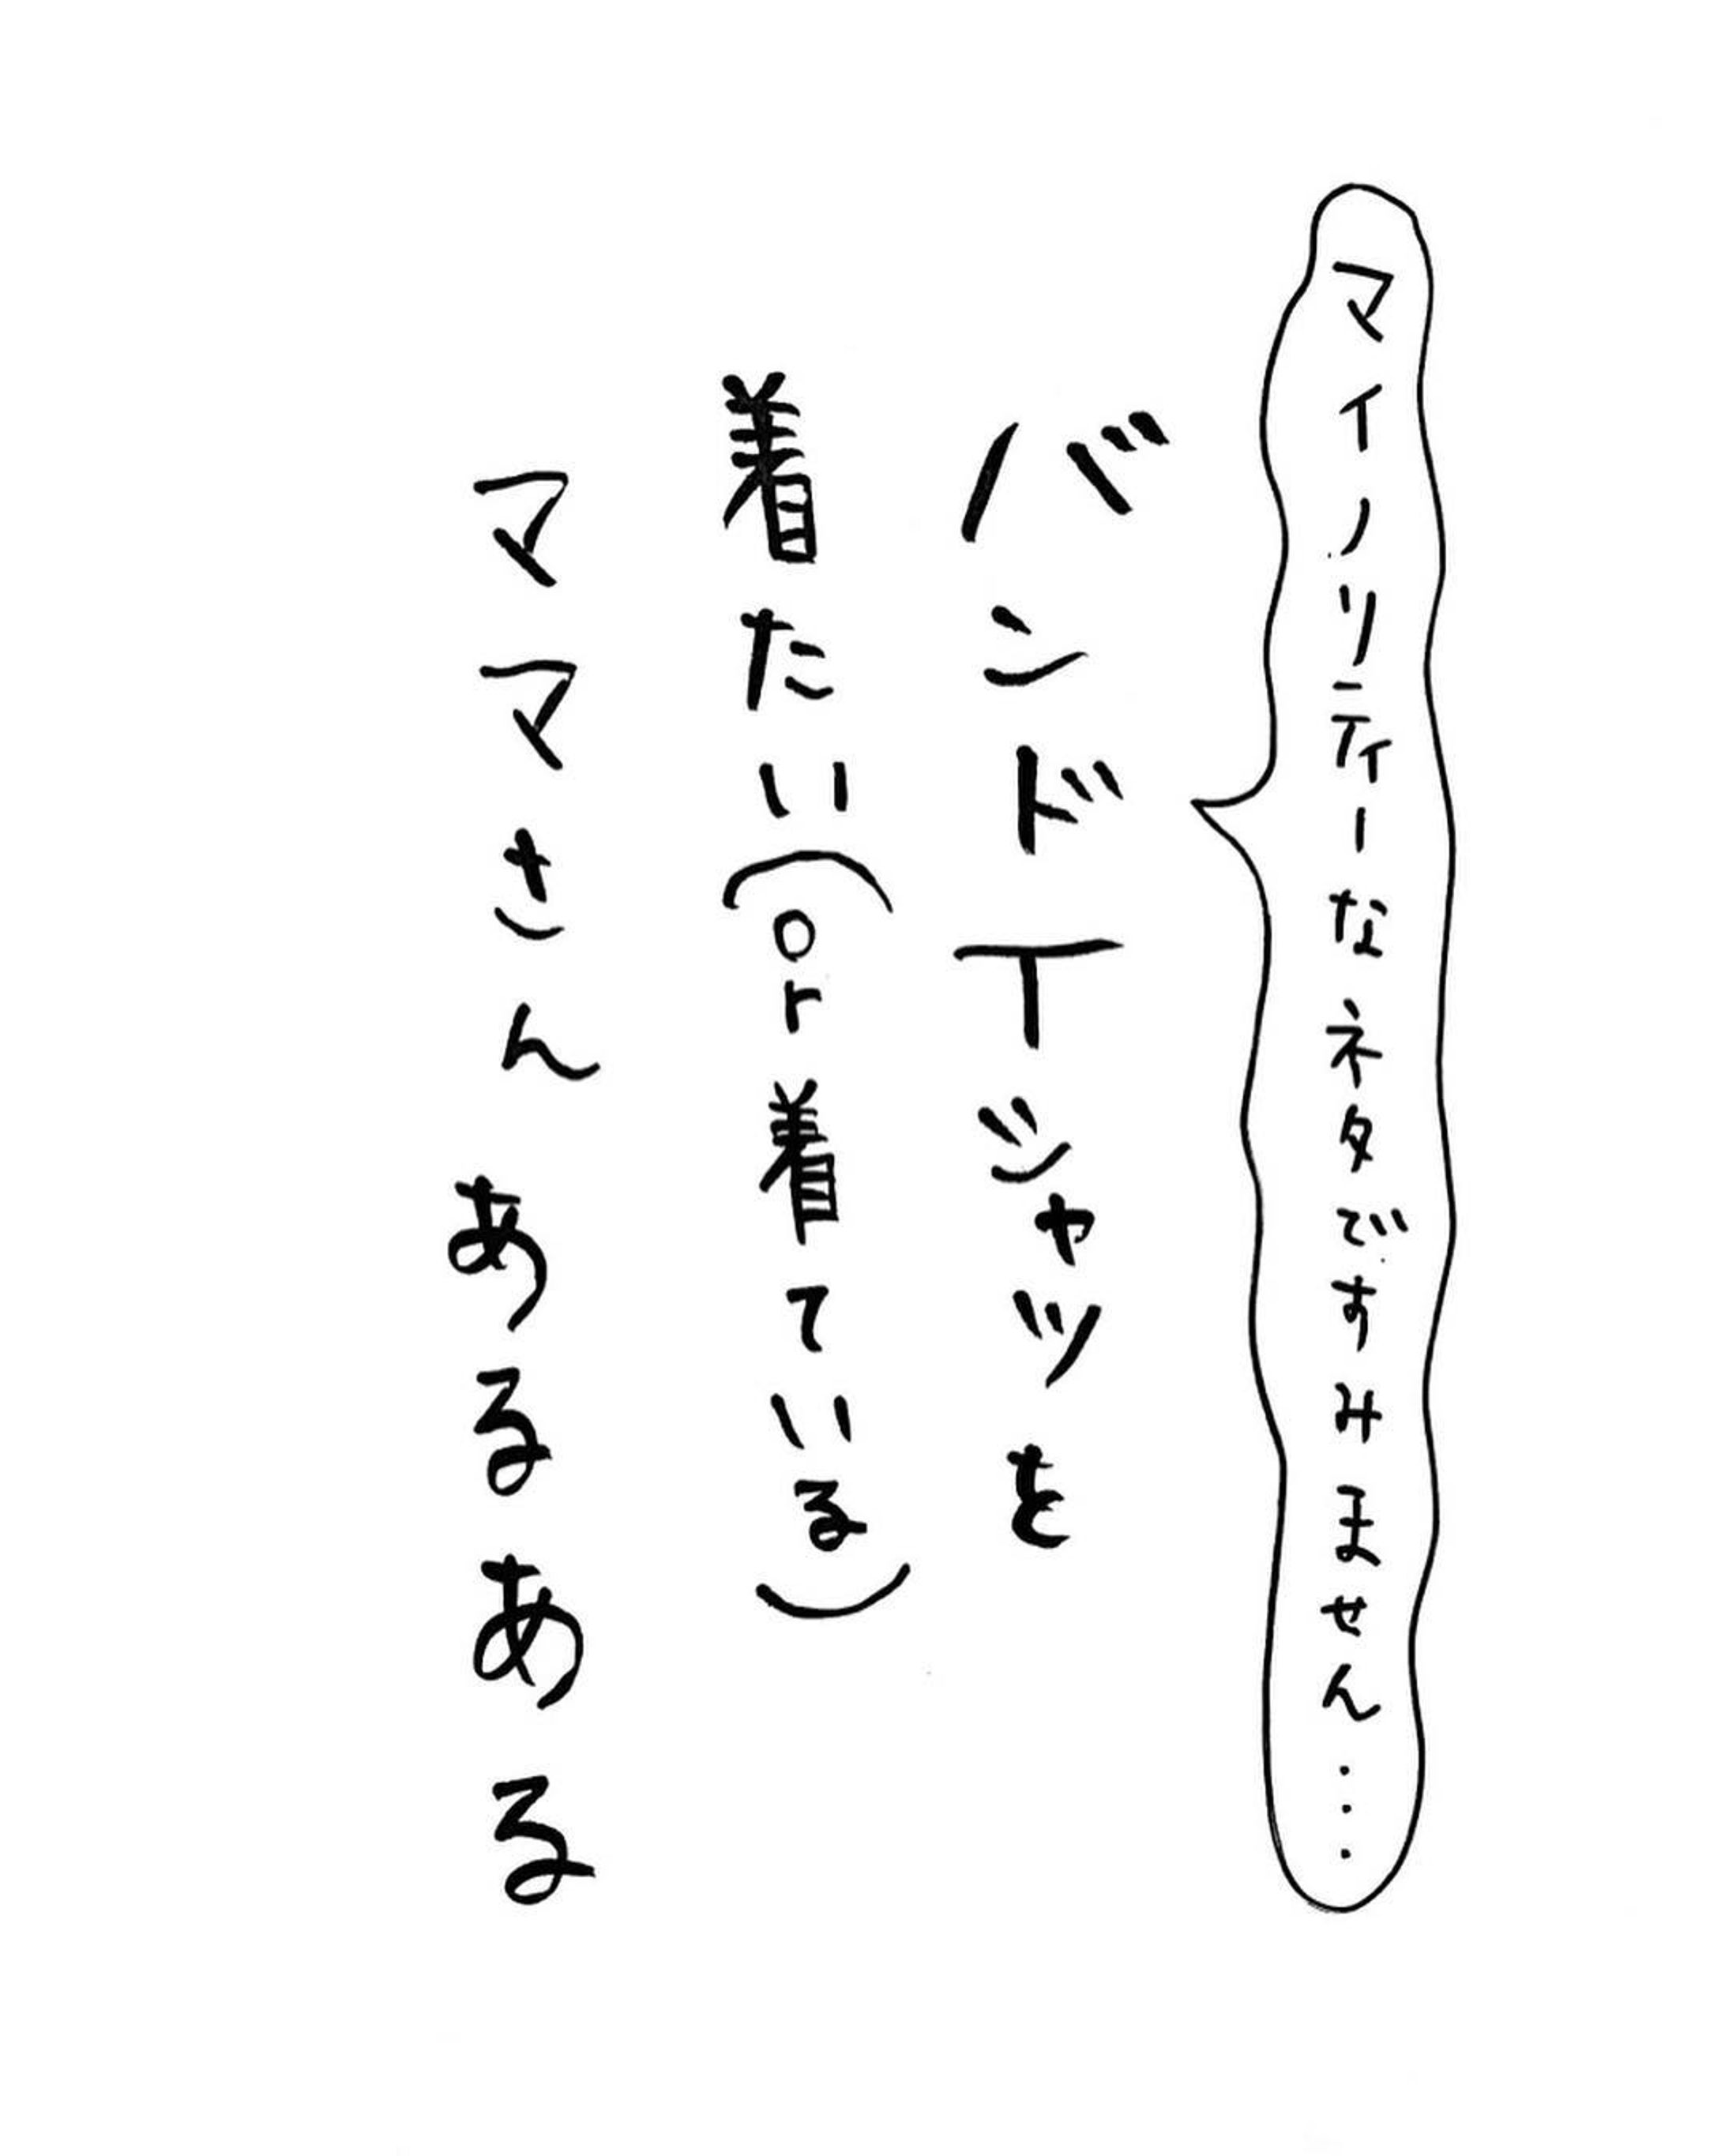 マイノリティーなネタですみません・・・
バンドTシャツを
着たい(or着ている)
ママさんあるある